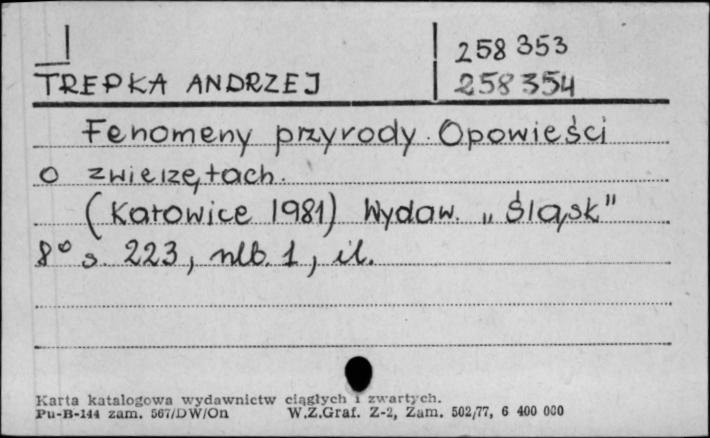 258 353
TREPKA ANDRZEJ
258 354
Fenomeny przyrody. Opowieści
o zwierzętach.
(Katowice 1981) Wydaw. „Śląsk"
8° s. 223, nlb. 1, il.
Karta katalogowa wydawnictw ciągłych i zwartych.
Pu-B-144 zam. 567/DW/On W.Z.Graf. Z-2, Zam. 502/77, 6 400 000